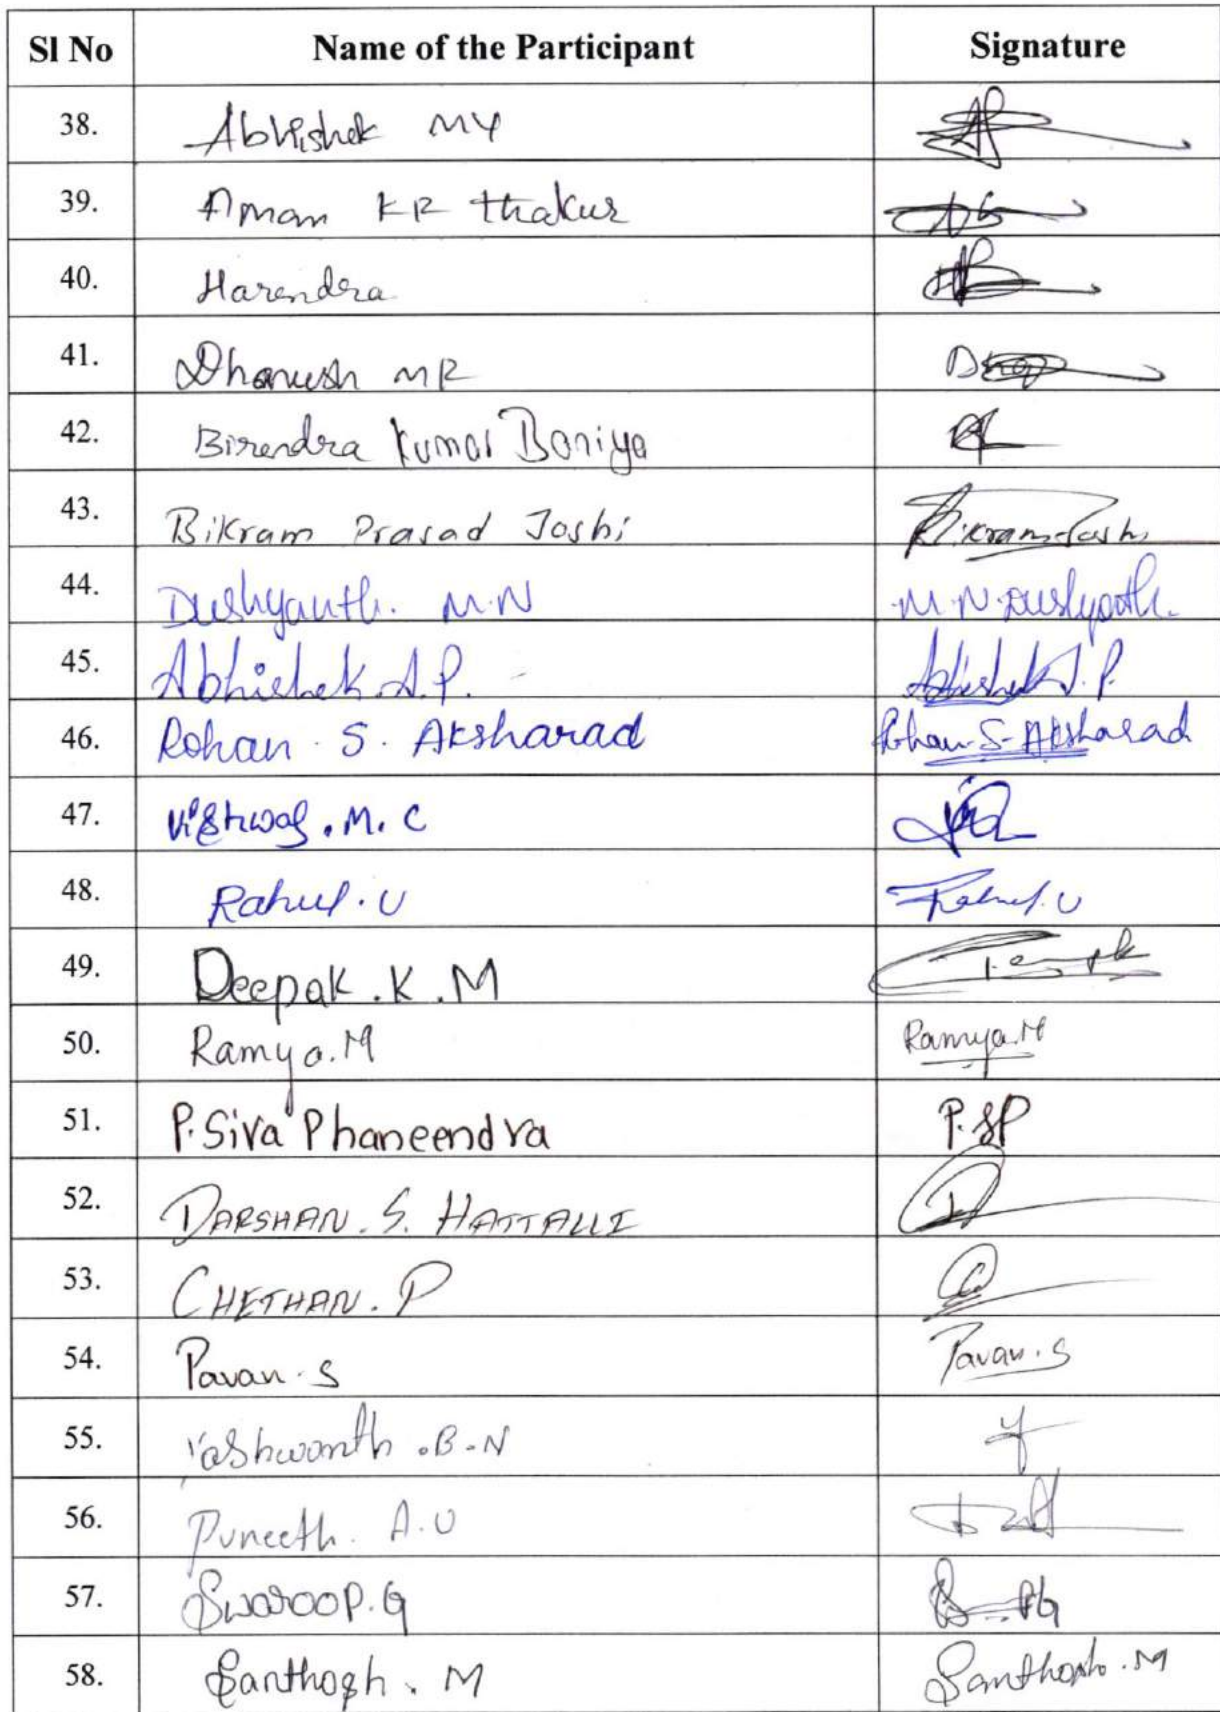 Sl No Name of the Participant Signature
38. Abhishek MY
39. Aman KR Thakur
40. Harendra
41. Dhanush MR
42. Birendra Kumar Baniya
43. Bikram Prasad Joshi Bikram Joshi
44. Dushyanth. M.N M.N.Dushyanth.
45. Abhishek.A.P. Abhishek A.P.
46. Rohan. S. Aksharad Rohan.S.Aksharad
47. Vishwas.M.C
48. Rahul.U Rahul.U
49. Deepak.K.M
50. Ramya.M Ramya.M
51. P.Siva Phaneendra P.SP
52. DARSHAN.S. HATTALLI
53. CHETHAN.P
54. Pavan.S Pavan.S
55. Yashwanth.B.N Y
56. Puneeth. A.U
57. Swaroop.G
58. Santhosh.M Santhosh.M